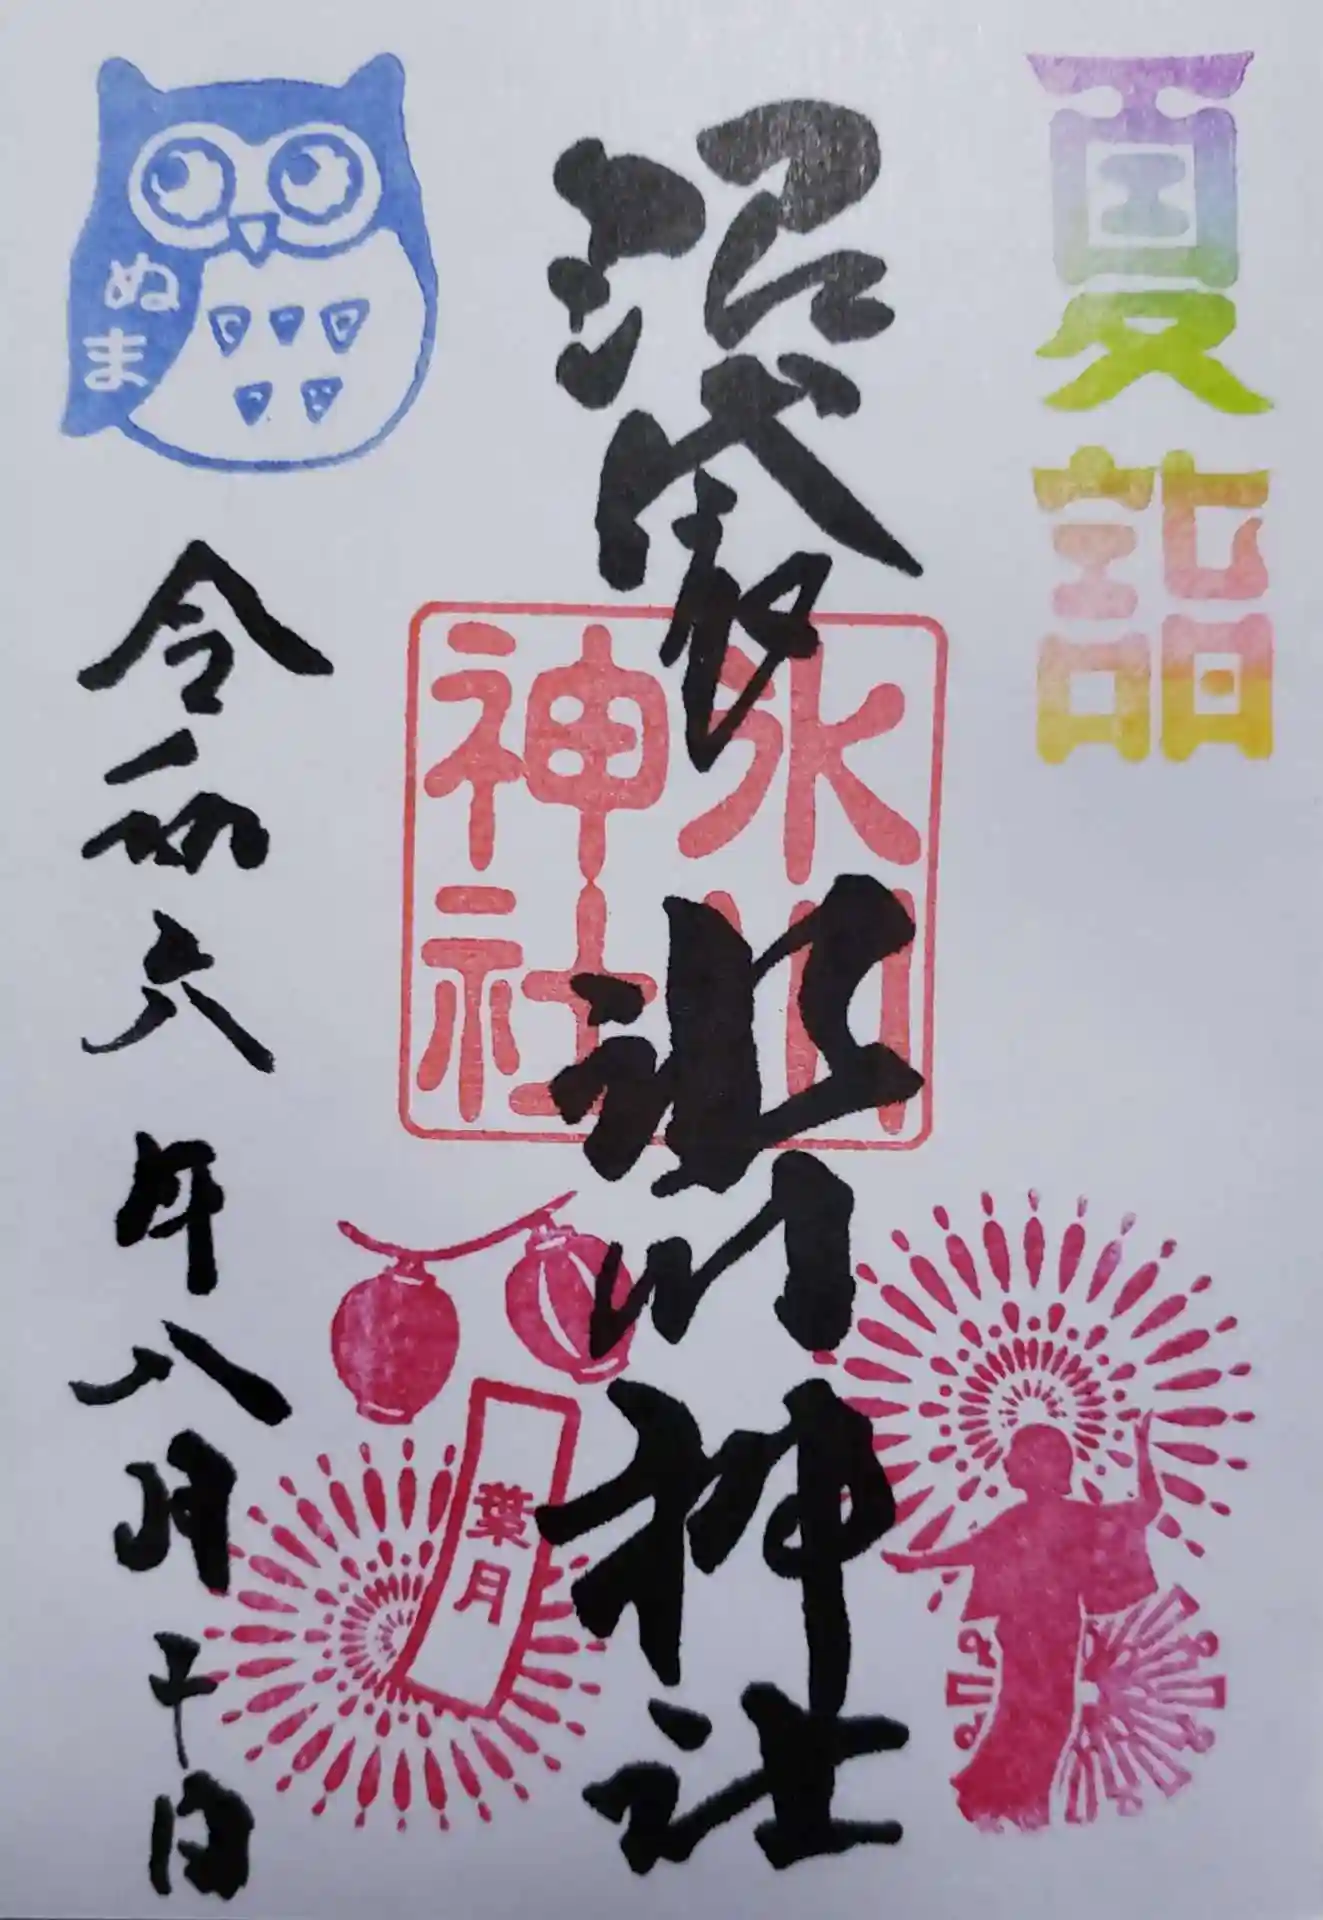 夏詣
沼袋氷川神社
氷川
神社
葉月
ぬま
令和六年八月十日